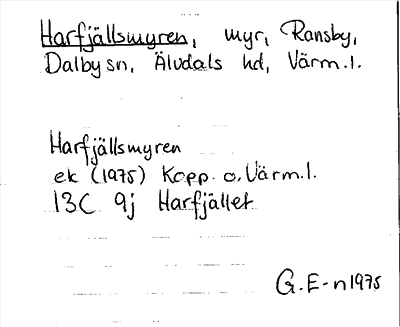 Harfjällsmyren, myr, Ransby,
Dalby sn, Älvdals hd, Värm.l.
Harfjällsmyren
ek (1975) Kopp. o. Värm.l.
13C 9j Harfjället
G. E-n 1975